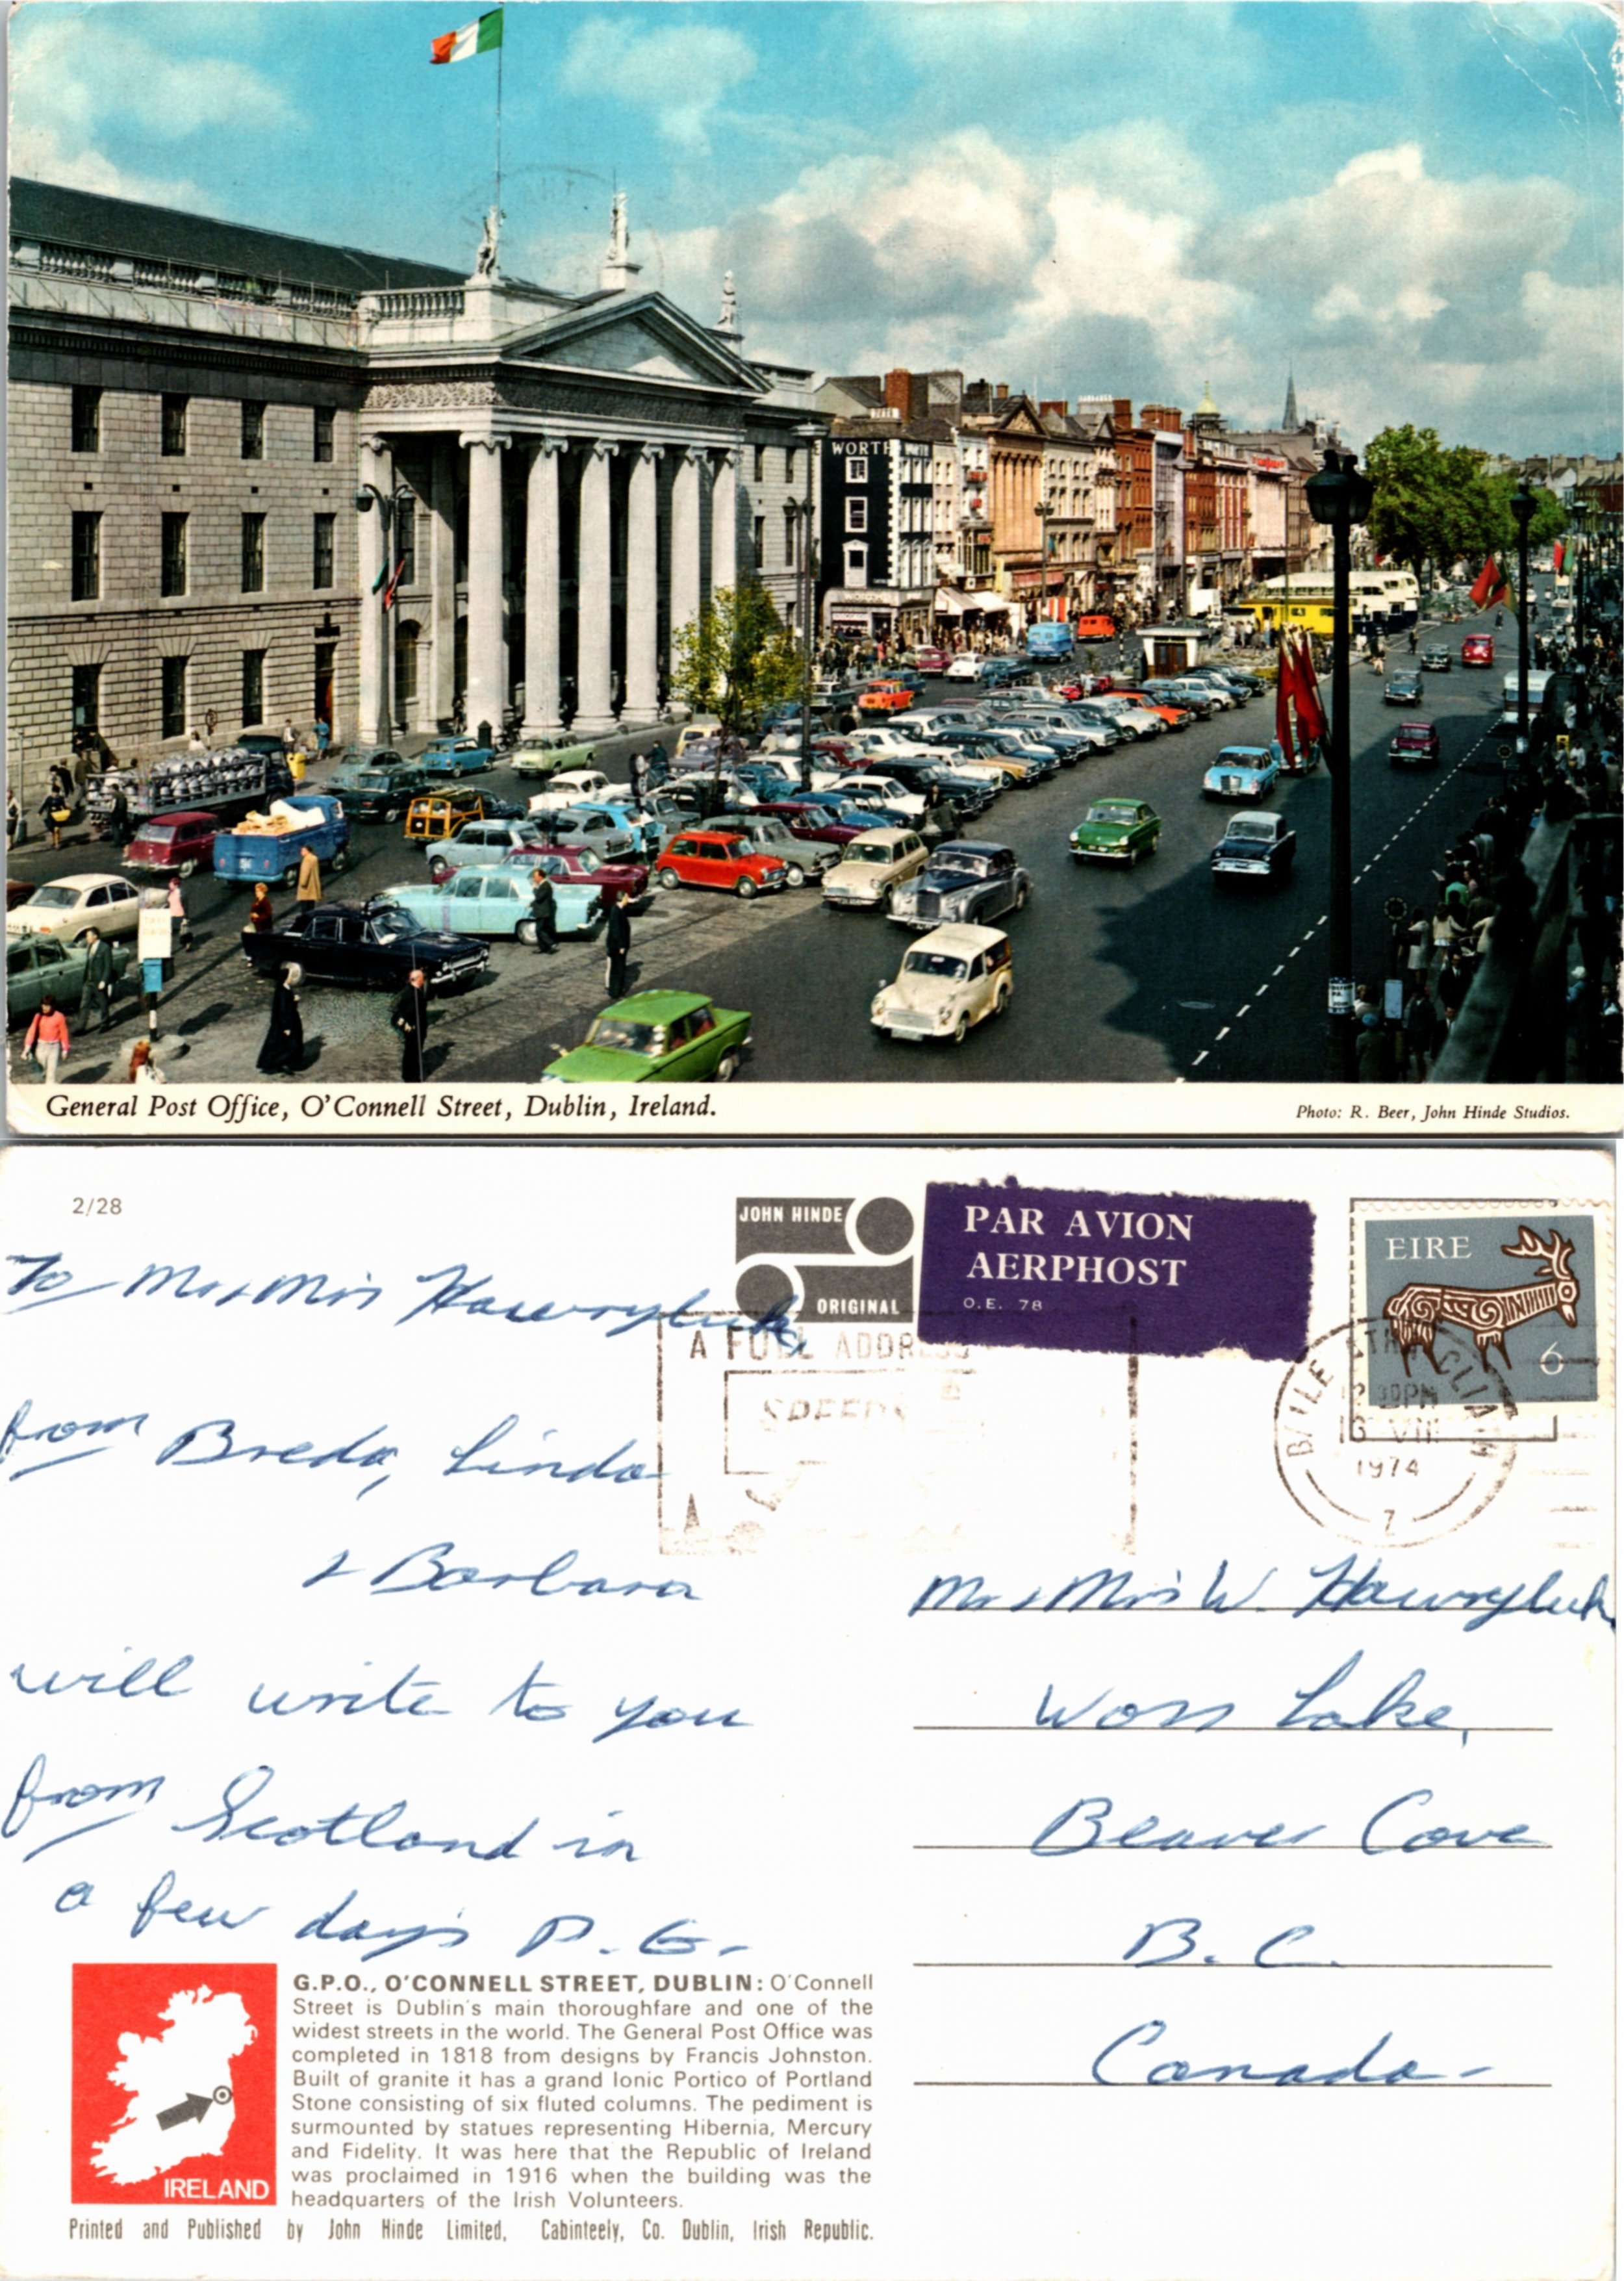 WORTH
General Post Office, O'Connell Street, Dublin, Ireland.
Photo: R. Beer, John Hinde Studios.
2/28
JOHN HINDE
ORIGINAL
PAR AVION
AERPHOST
O.E. 78
EIRE
6
A FULL ADDRESS
SPEEDS
BAILE ÁTHA CLIATH
PM
16 VIII
1974
7
To Mr & Mrs Hawryluk,
from Breda, Linda
& Barbara
will write to you
from Scotland in
a few day's D.G.
Mr & Mrs W. Hawryluk,
Woss Lake,
Beaver Cove
B.C.
Canada.
G.P.O., O'CONNELL STREET, DUBLIN: O'Connell
Street is Dublin's main thoroughfare and one of the
widest streets in the world. The General Post Office was
completed in 1818 from designs by Francis Johnston.
Built of granite it has a grand Ionic Portico of Portland
Stone consisting of six fluted columns. The pediment is
surmounted by statues representing Hibernia, Mercury
and Fidelity. It was here that the Republic of Ireland
was proclaimed in 1916 when the building was the
headquarters of the Irish Volunteers.
IRELAND
Printed and Published by John Hinde Limited, Cabinteely, Co. Dublin, Irish Republic.